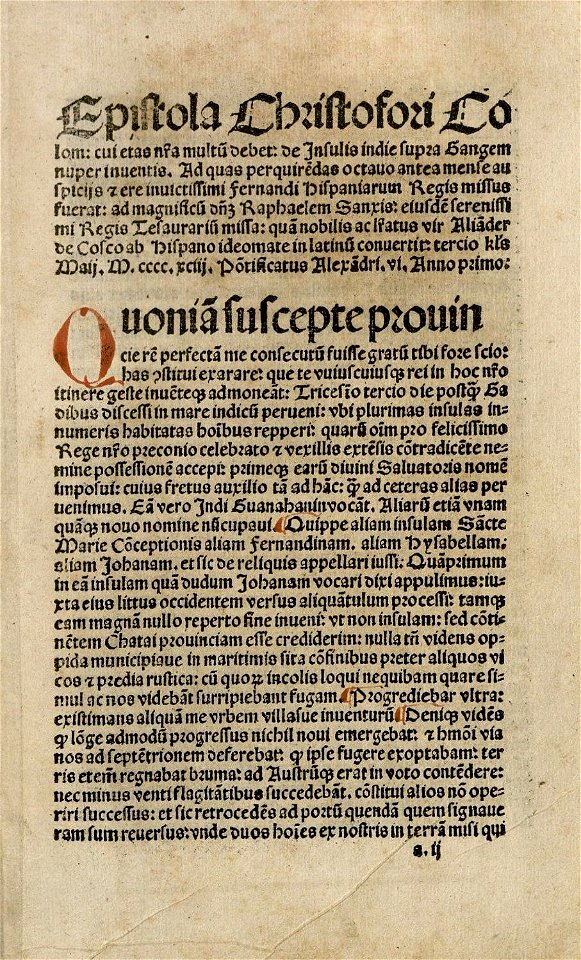 Epistola Christofori Co
lom: cui etas nr̃a multũ debet: de Insulis indie supra Gangem
nuper inuentis. Ad quas perquirẽdas octauo antea mense au
spicijs ⁊ ere inuictissimi Fernandi Hispaniarum Regis missus
fuerat: ad magnificũ dñȝ Raphaelem Sanxis: eiusdẽ serenissi
mi Regis Tesaurariũ missa: quã nobilis ac lr̃atus vir Aliãder
de Cosco ab Hispano ideomate in latinũ conuertit: tercio kl̃s
Maij. M. cccc. xciij. Põtificatus Alexãdri. vi. Anno primo:
Quoniã suscepte prouin
cie rẽ perfectã me consecutũ fuisse gratũ tibi fore scio:
has ꝯstitui exarare: que te vniuscuiusqꝫ rei in hoc nr̃o
itinere geste inuẽteqꝫ admoneãt: Tricesĩo tercio die postqꝫ̃ Ga
dibus discessi in mare indicũ perueni: vbi plurimas insulas in-
numeris habitatas hoĩbus repperi: quarũ oĩm pro felicissimo
Rege nr̃o preconio celebrato ⁊ vexillis extẽsis cõtradicẽte ne-
mine possessionẽ accepi: primeqꝫ earũ diuini Saluatoris nomẽ
imposui: cuius fretus auxilio tã ad hãc: qꝫ̃ ad ceteras alias per
uenimus. Eã vero Indi Guanahanin vocãt. Aliarũ etiã vnam
quãqꝫ nouo nomine nũcupaui. Quippe aliam insulam Sãcte
Marie Cõceptionis aliam Fernandinam. aliam Hysabellam.
aliam Johanam. et sic de reliquis appellari iussi. Quãprimum
in eã insulam quã dudum Johanam vocari dixi appulimus: iu-
xta eius littus occidentem versus aliquãtulum processi: tamqꝫ
eam magnã nullo reperto fine inueni: vt non insulam: sed cõti-
nẽtem Chatai prouinciam esse crediderim: nulla tñ videns op-
pida municipiaue in maritimis sita cõfinibus preter aliquos vi
cos ⁊ predia rustica: cũ quoꝝ incolis loqui nequibam quare si-
mul ac nos videbãt surripiebant fugam. Progrediebar vltra:
existimans aliquã me vrbem villasue inuenturũ. Deniqꝫ vidẽs
ꝙ lõge admodũ progressus nichil noui emergebat: ⁊ hmõi via
nos ad septẽtrionem deferebat: ꝙ ipse fugere exoptabam: ter
ris etem̃ regnabat bruma: ad Austrũqꝫ erat in voto contẽdere:
nec minus venti flagitãtibus succedebãt. cõstitui alios nõ ope-
riri successus: et sic retrocedẽs ad portũ quendã quem signaue
ram sum reuersus: vnde duos hoĩes ex nostris in terrã misi qui
a. ij